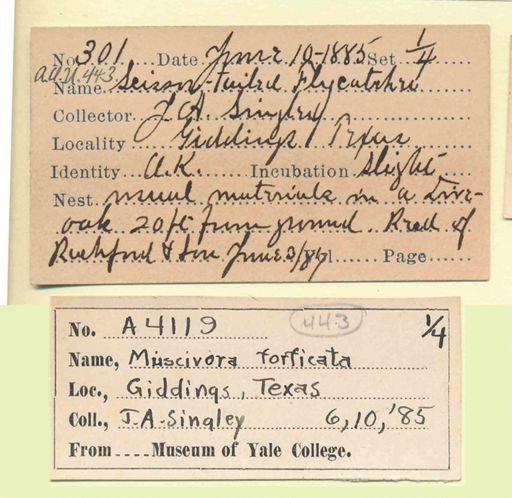 No. 301 Date June 10-1885 Set 1/4
A.O.U. 443.
Name Scissor-tailed Flycatcher
Collector J. A. Singley
Locality Giddings Texas
Identity O.K. Incubation Slight
Nest usual materials in a live-
oak 20 ft from ground. Recd of
& Son June 3/87 Page
No. A4119 443 1/4
Name, Muscivora forficata
Loc., Giddings, Texas
Coll., J.A. Singley 6,10,'85
From Museum of Yale College.